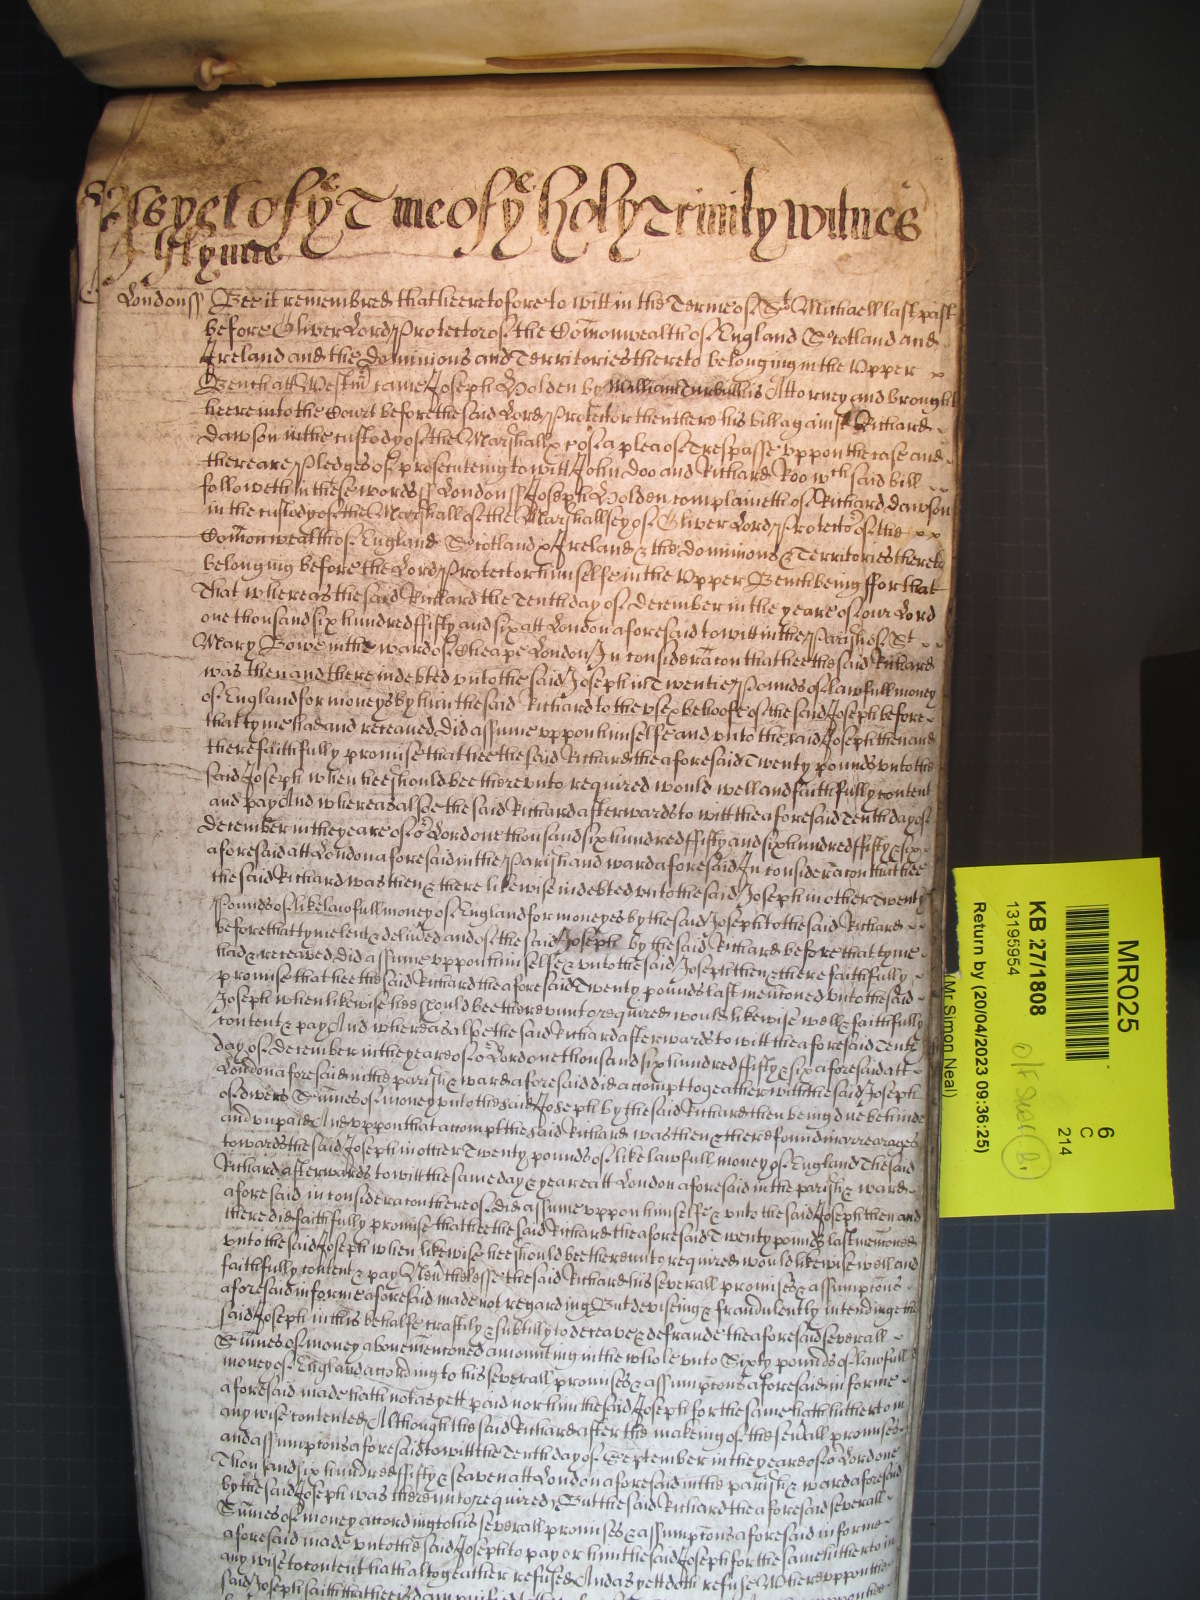 As yet of ye Tme of ye holy Trinity Witnes
Londonss Bee it remembred that heeretofore to witt in the Terme of St Michaell last past
before Oliver Lord Protector of the Comonwealth of England Scotland and
Ireland and the Dominions and Territories thereto belonging in the Upper
Bench att Westmr came Joseph Holden by William Turbill his Attorney and brought
heere into the Court before the said Lord Protector then there his bill against Richard
Dawson in the custody of the Marshall &c of a plea of Trespasse vppon the case and
there are Pledges of prosecuteing to witt John Doo and Richard Roo wch said bill
followeth in these words ss London ss Joseph Holden complaineth of Richard Dawson
in the custody of the Marshall of the Marshallsey of Oliver Lord Protector of the
Comonwealth of England Scotland & Ireland & the dominions & Territories thereto
belonging before the Lord Protector himselfe in the Vpper Bench being ffor that
That whereas the said Richard the Tenth day of December in the yeare of our Lord
one thousand six hundred ffifty and six att London aforesaid to witt in the Parish of St
Mary Bowe in the ward of Cheape London In consideracon that hee the said Richard
was then and there indebted vnto the said Joseph in Twentie Pounds of lawfull money
of England for moneys by him the said Richard to the vse & behoofe of the said Joseph before
that tyme had and receaved did assume vppon himselfe and vnto the said Joseph then and
there faithfully promise that hee the said Richard the aforesaid Twenty pounds vnto the
said Joseph when hee should bee therevnto required would well and faithfully content
and pay And whereas alsoe the said Richard afterwards to witt the aforesaid Tenth day of
December in the yeare of or Lord one thousand six hundred ffifty and six hundred ffifty & six
aforesaid att London aforesaid in the Parish and ward aforesaid In consideracon that hee
the said Richard was then & there likewise indebted vnto the said Joseph in other Twenty
Pounds of like lawfull money of England for moneyes by the said Joseph to the said Richard
before that tyme lent & delivered and of the said Joseph by the said Richard before that tyme
had & receaved did assume vppon himselfe & vnto the said Joseph then & there faithfully
promise that hee the said Richard the aforesaid Twenty pounds last mencioned vnto the said
Joseph when likewise hee should bee therevnto required would likewise well & faithfully
content & pay And whereas alsoe the said Richard afterwards to witt the aforesaid Tenth
day of December in the yeare of or Lord one thousand six hundred ffifty & six aforesaid att
London aforesaid in the parish & ward aforesaid did accompt togeather with the said Joseph
of divers Sumes of money vnto the said Joseph by the said Richard then being due behinde
and vnpaid And vppon that accompt the said Richard was then & there found in arrearages
towards the said Joseph in other Twenty pounds of like lawfull money of England The said
Richard afterwards to witt the same day & yeare att London aforesaid in the parish & ward
aforesaid in consideracon thereof did assume vppon himselfe & vnto the said Joseph then and
there did faithfully promise that hee the said Richard the aforesaid Twenty pounds last mencioned
vnto the said Joseph when likewise hee should bee therevnto required would likewise well and
faithfully content & pay Neverthelesse the said Richard his severall promises & assumptions
aforesaid in forme aforesaid made not regarding But deviseing & fraudulently intendinge the
said Joseph in this behalfe craftily & subtilly to deceave & defraude the aforesaid severall
Sumes of money abovemencioned amounting in the whole vnto Sixty pounds of lawfull
money of England according to his severall promises & assumptons aforesaid in forme
aforesaid made hath not as yett paid nor him the said Joseph for the same hath hitherto in
any wise contented Although the said Richard after the making of the severall promises
and assumptons aforesaid to witt the Tenth day of September in the yeare of or Lord one
Thousand six hundred ffifty & seaven att London aforesaid in the parish & ward aforesaid
by the said Joseph was therevnto required But the said Richard the aforesaid severall
Sumes of money according to his severall promises & assumptons aforesaid in forme
aforesaid made vnto the said Joseph to pay or him the said Joseph for the same hitherto in
any wise to content hath altogeather refused And as yett doth refuse Wherevppon the
said Joseph saith that hee is
MR025
6
C
214
KB 27/1808
13195954
Return by (20/04/2023 09:36:25)
(Mr Simon Neal)